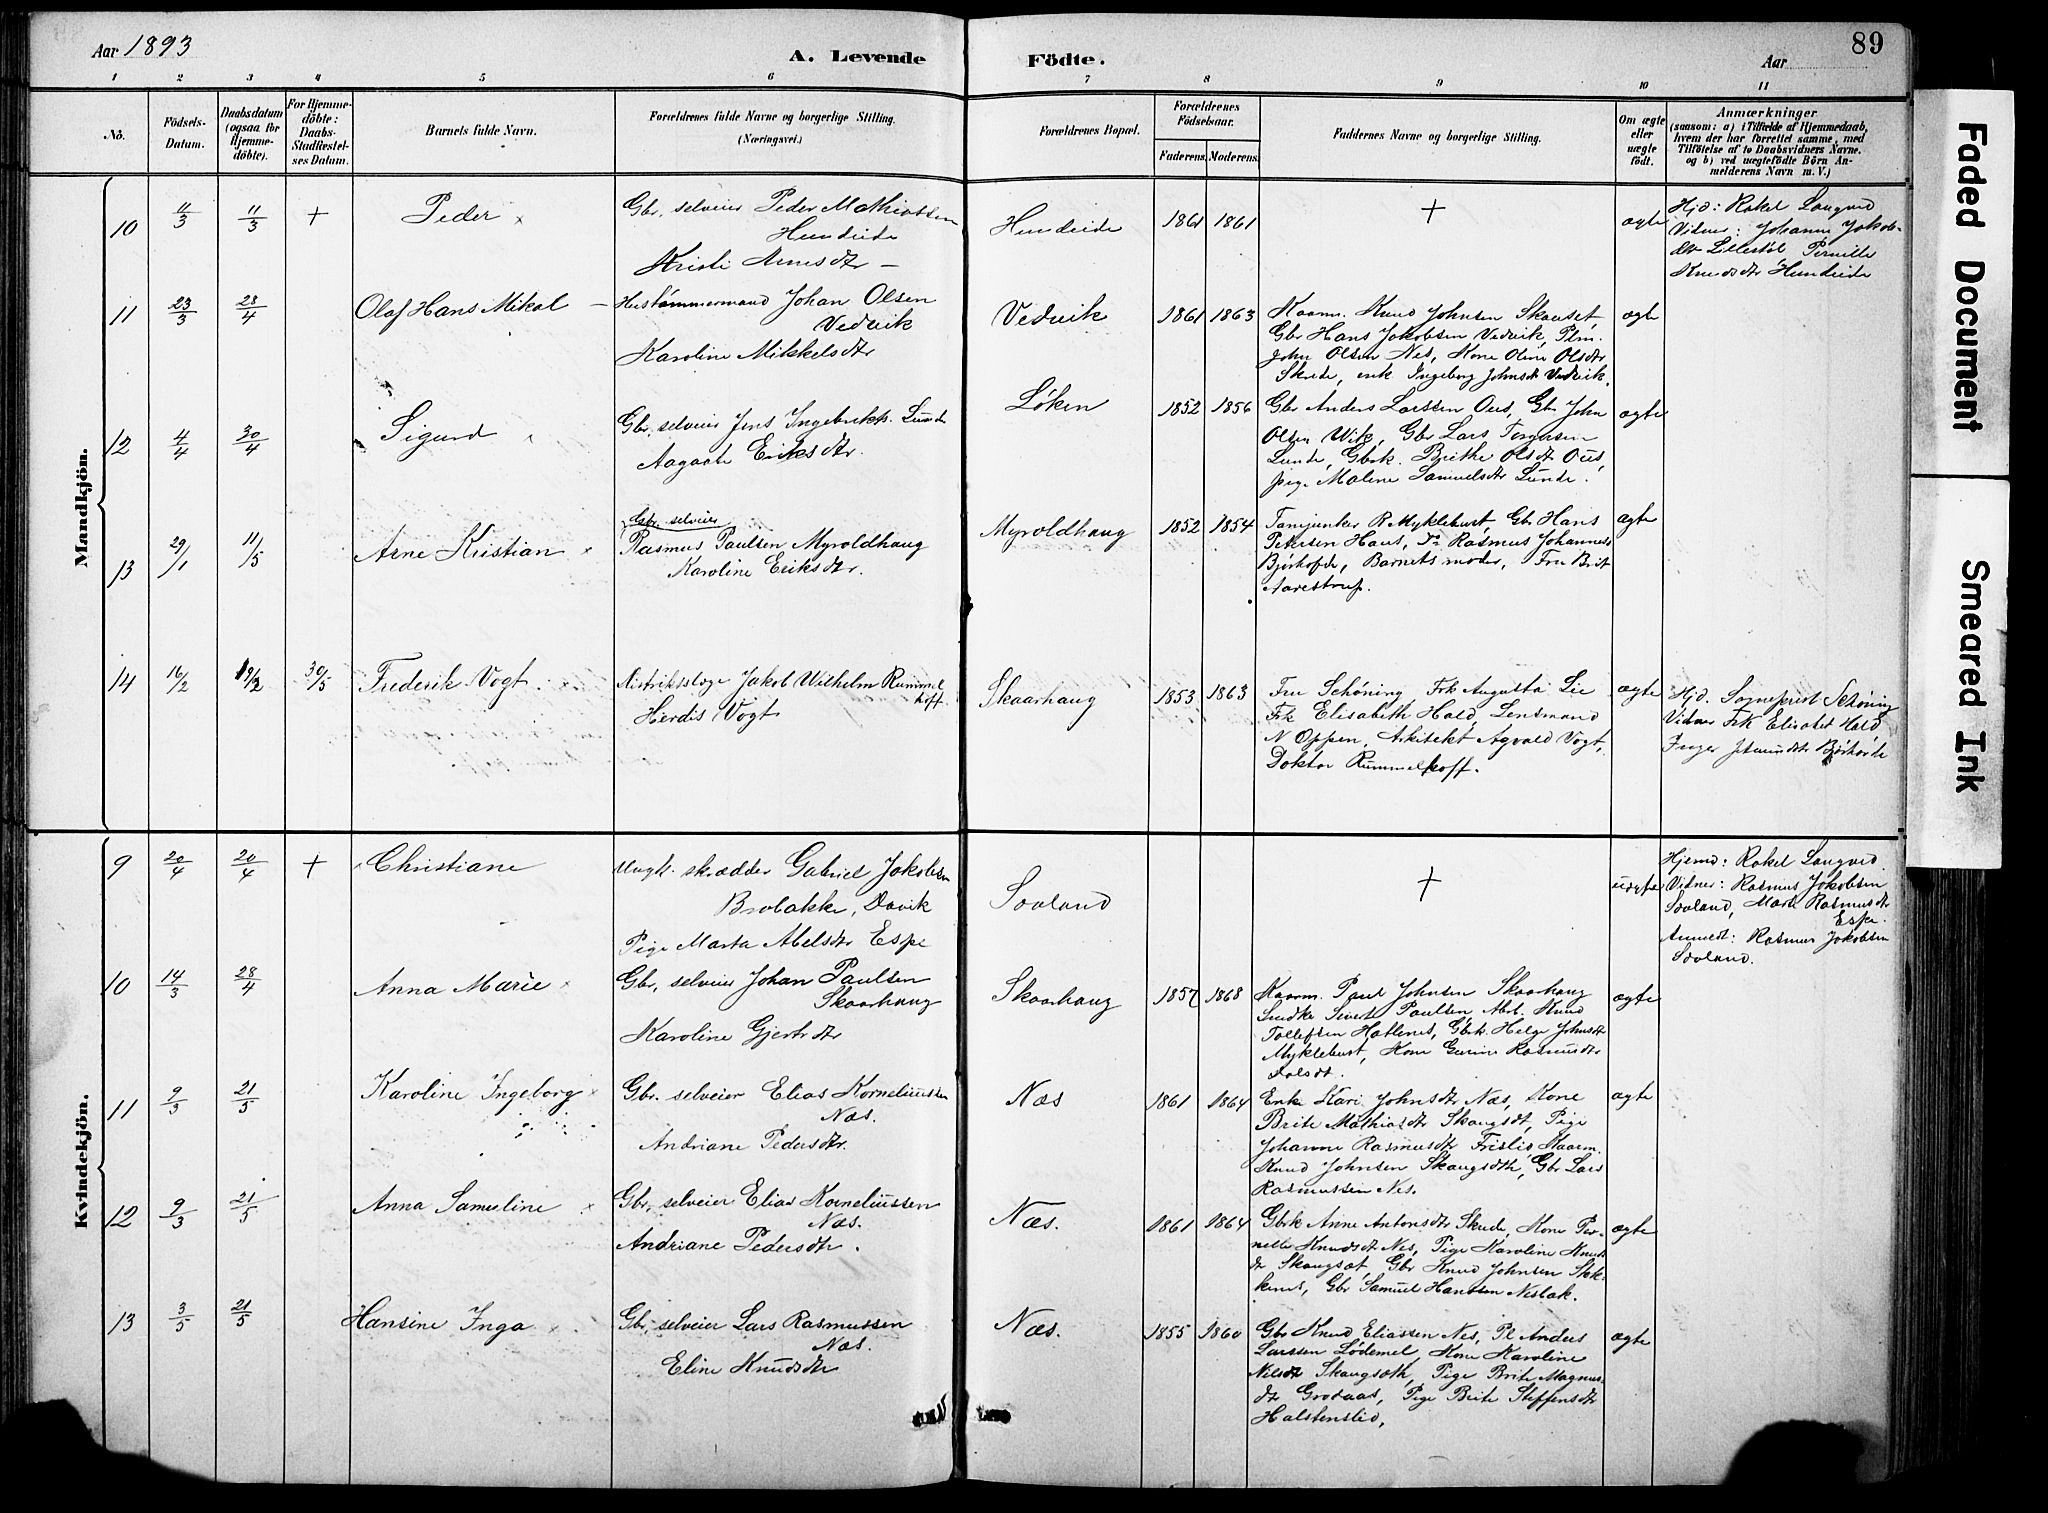 89
Aar 1893
A. Levende Födte.
Aar
1 2 3 4 5 6 7 8 9 10 11
No.
Födsels-Datum.
Daabsdatum (ogsaa for Hjemmedöbte).
For Hjemmedöbte: Daabs-Stadfæstelses Datum.
Barnets fulde Navn.
Forældrenes fulde Navne og borgerlige Stilling.
(Næringsvei.)
Forældrenes Bopæl.
Forældrenes Födselsaar.
Faderens. Moderens.
Faddernes Navne og borgerlige Stilling.
Om ægte eller uægte födt.
Anmærkninger
(saasom: a) i Tilfælde af Hjemmedaab,
hvem der har forrettet samme, med
Tilföielse af to Daabsvidners Navne.
og b) ved uægtefödte Börn An-
melderens Navn m. V.)
Mandkjön.
10 11/3 11/3 + Peder
Gbr. selveier Peder Mathiassen
Hundeide
Kristi Arnesdtr —
Hundeide 1861 1861 + ægte
Hjd: Rakel Langved
Vidner: Johanne Jakobs-
dtr Lillestöl Pernille
Knudsdtr Hundeide
11 23/3 28/4 Olaf Hans Mikal —
Hustømmermand Johan Olsen
Vedvik
Karoline Mikkelsdtr
Vedvik 1861 1863
Kaarm. Knud Johnsen Skauset,
Gbr Hans Jakobsen Vedvik, Plm.
John Olsen Nes, Kone Oline Olsdtr
Skrede, enk Ingeborg Johnsdt Vedvik.
ægte
12 4/4 30/4 Sigurd
Gbr. selveier Jens Ingebrikts. Lunde
Aagaate Eriksdtr.
Løken 1852 1856
Gbr Anders Larssen Ous, Gbr John
Olsen Wik, Gbr Lars
Lunde, Gbrk. Brithe Olsdt Ous,
pige Malene Samuelsdtr Lunde.
ægte
13 29/1 11/5 Arne Kristian ×
Gbr. selveier
Rasmus Paulsen Myroldhaug
Karoline Eriksdtr.
Myroldhaug 1852 1854
R Myklebust, Gbr Hans
Petersen Haus, Do Rasmus Johannes
Barnets moder, Fru Brit
Aarestrup.
ægte
14 16/2 19/2 30/5 Frederik Vogt
Distriktslæge Jakob Wilhelm Rummel
hoff
Herdis Vogt
Skaarhaug 1853 1863
Fru Schöning, Frk Augusta Lie
Frk Elisabeth Hald, Lensmand
N Oppen, Arkitekt Agvald Vogt,
Doktor Rummelhoff.
ægte
Hjd. Sogneprest Schöning
Vidner Frk Elisabet Hald
Inger
Kvindekjön.
9 20/4 20/4 + Christiane
Ungk. skrædder Gabriel Jakobsen
Brobakke, Davik
Pige Marta Abelsdtr Espe
Sovland + uægte
Hjemd: Rakel Langved
Vidner: Rasmus Jakobsen
Sovland, Marte Rasmusdtr
Espe.
Anmedt: Rasmus Jakobsen
Sovland.
10 14/3 28/4 Anna Marie ×
Gbr, selveier Johan Paulsen
Skaarhaug
Karoline Gjertsdtr
Skaarhaug 1857 1868
Kaarm. Paul Johnsen Skaarhaug
Sivert Paulsen Knud
Tollefsen Hatlenes, Gbrk. Helge Johnsdt
Myklebust, Kone Gurine Rasmusdtr
ægte
11 9/3 21/5 Karoline Ingeborg ×
Gbr. selveier Elias Korneliussen
Næs.
Andriane Pedersdtr.
Næs 1861 1864
Enke Kari Johnsdtr Næs, Kone
Brite Mathiasdtr Skaugsdt, Pige
Johanne Rasmusdtr Frislid Kaarm.
Knud Johnsen Skaugsdth, Gbr Lars
Rasmussen Nes.
ægte
12 9/3 21/5 Anna Samuline ×
Gbr, selveier Elias Korneliussen
Næs.
Andriane Pedersdtr.
Næs. 1861 1864
Gbrk Anne Antonsdtr Skrede, Kone Per-
nelle Knudsdt Nes, Pige Karoline Knuds
dtr Skaugsæt Gbr Knud Johnsen Stok-
kenes, Gbr Samuel Hanssen Nesbak.
ægte
13 3/5 21/5 Hansine Inga ×
Gbr, selveier Lars Rasmussen
Næs.
Eline Knudsdtr
Næs. 1855 1860
Gbr Knud Eliassen Nes, Pl Anders
Larssen Lødemel, Kone Karoline
Nilsdt Skaugsæth, Pige Brite Magnus-
dtr Grodaas, Pige Brite Steffensdtr
Halstenslid,
ægte
Faded Document
Smeared Ink